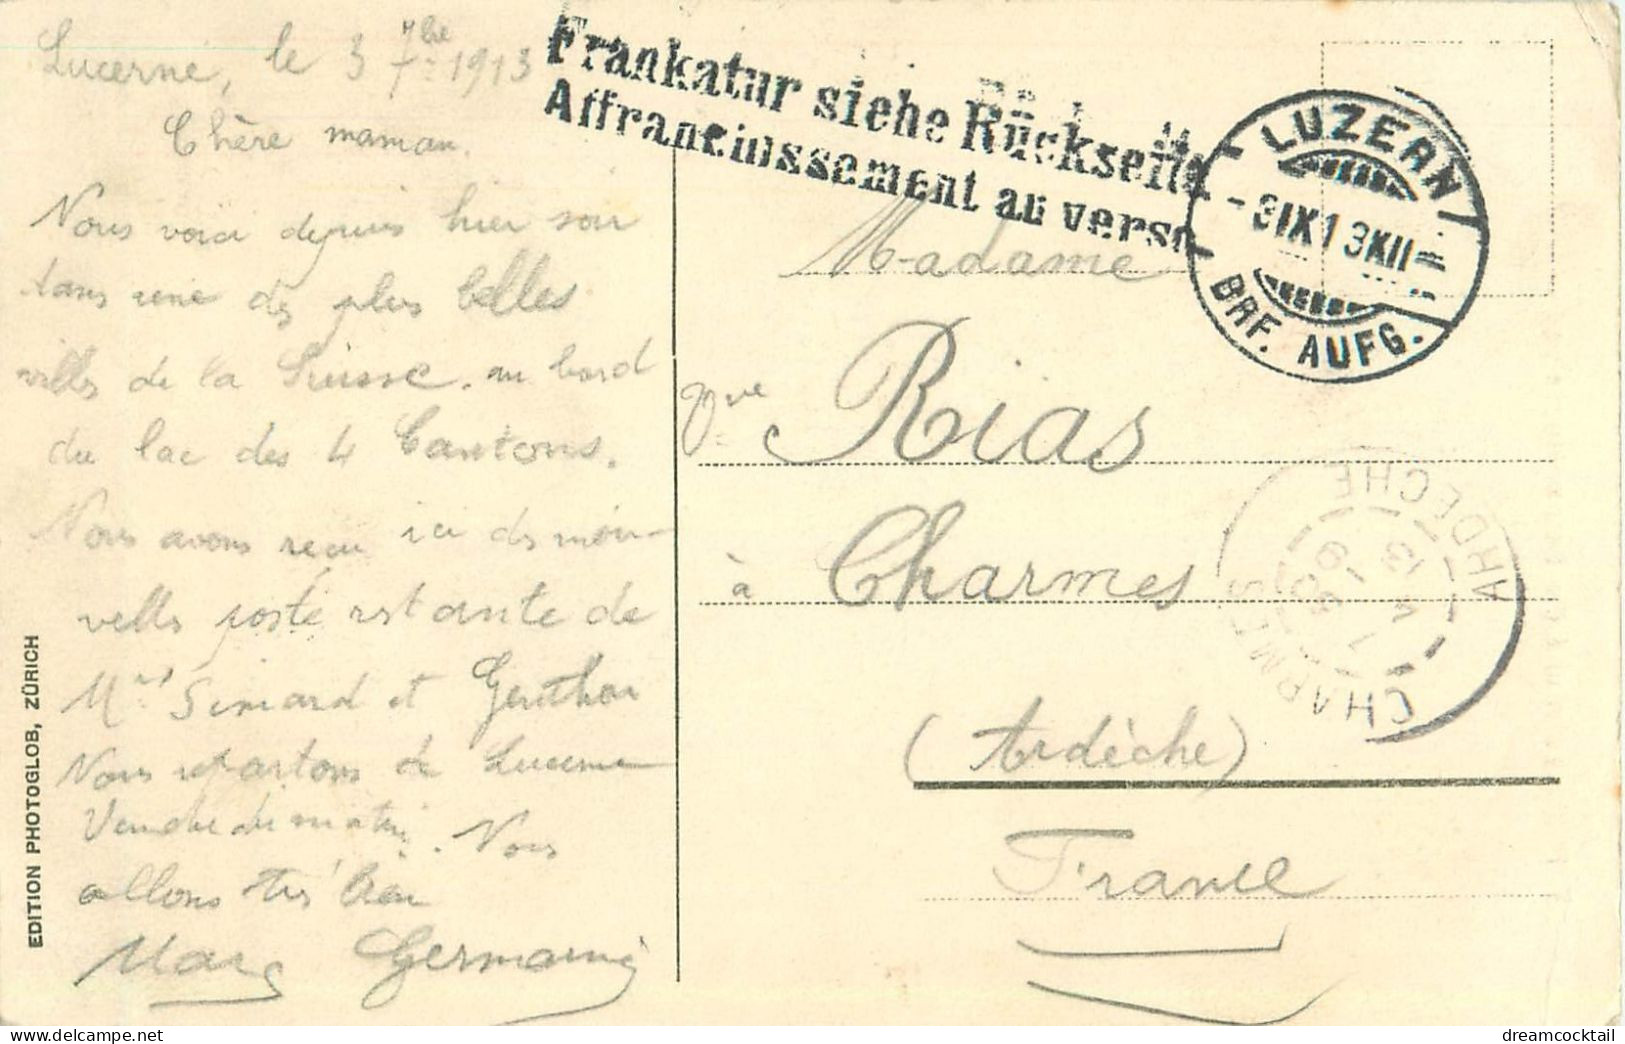 Lucerne, le 3 7bre 1913
Chère maman.
Nous voici depuis hier soir
dans une des plus belles
villes de la Suisse. au bord
du lac des 4 Cantons.
Nous avons reçu ici des nou-
velles poste restante de
Mrs Simard et
Nous repartons de Lucerne
Vendredi matin. Nous
allons très bien
Marc Germaine
EDITION PHOTOGLOB, ZÜRICH
Frankatur siehe Rückseite
Affranchissement au verso
LUZERN
-3 IX 13 XII-
BRF. AUFG.
Madame
Vve Rias
à Charmes
(Ardèche)
France
CHARMES
ARDÈCHE
dreamcocktail